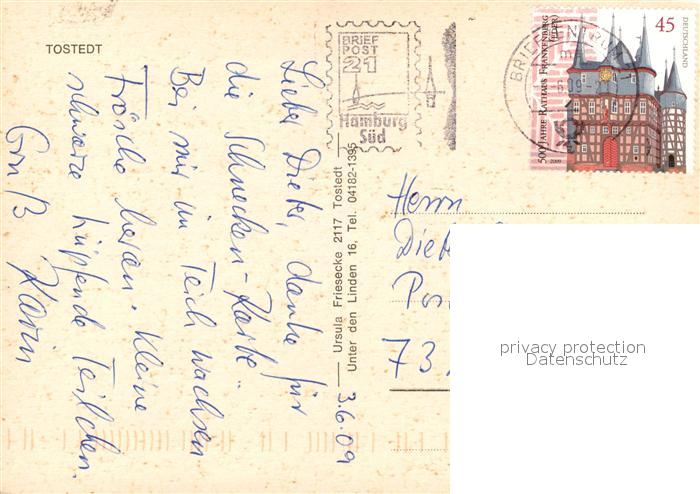 TOSTEDT
Lieber Dieter, danke für
die Schnecken-Karte.
Bei mir im Teich wachsen
Frösche heran. Kleine
schwarze hüpfende Teilchen.
Gruß
Karin
3.6.09
Ursula Friesecke 2117 Tostedt
Unter den Linden 16, Tel. 04182-1395
BRIEF
POST
21
Hamburg
Süd
BRIEFZENTRUM
09
500 JAHRE RATHAUS FRANKENBERG
(EDER)
2009
45
DEUTSCHLAND
Herrn
73
privacy protection
Datenschutz